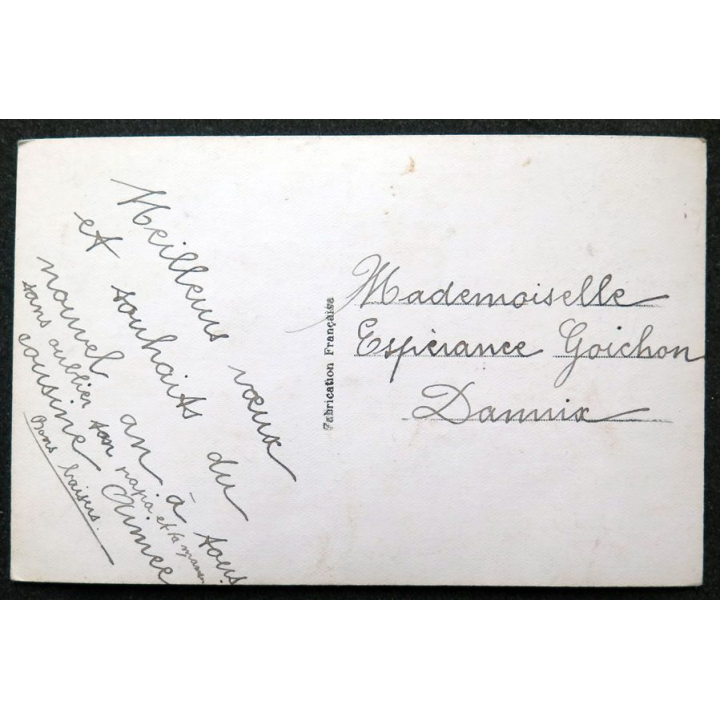 Meilleurs vœux
et souhaits du
nouvel an à tous
sans oublier ton papa et ta maman
cousine Aimée
Bons baisers.
Fabrication Française
Mademoiselle
Espérance Goichon
Dannix